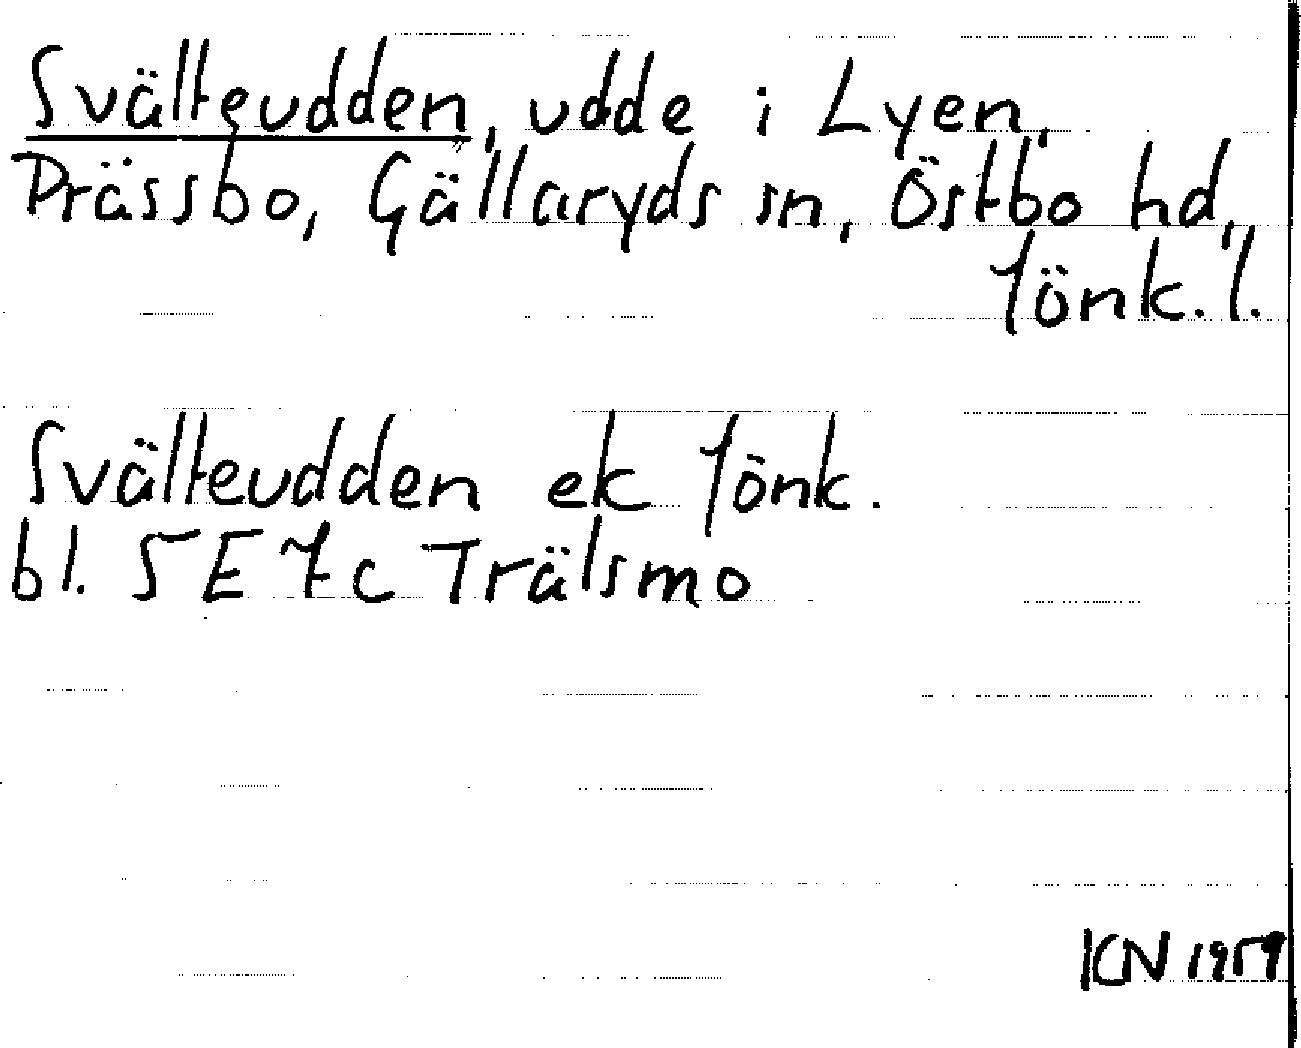 Svälteudden, udde i Lyen,
Prässbo, Gällaryds sn, Östbo hd,
Jönk. l.
Svälteudden ek Jönk.
bl. 5E 7c Trälsmo
KN 1959